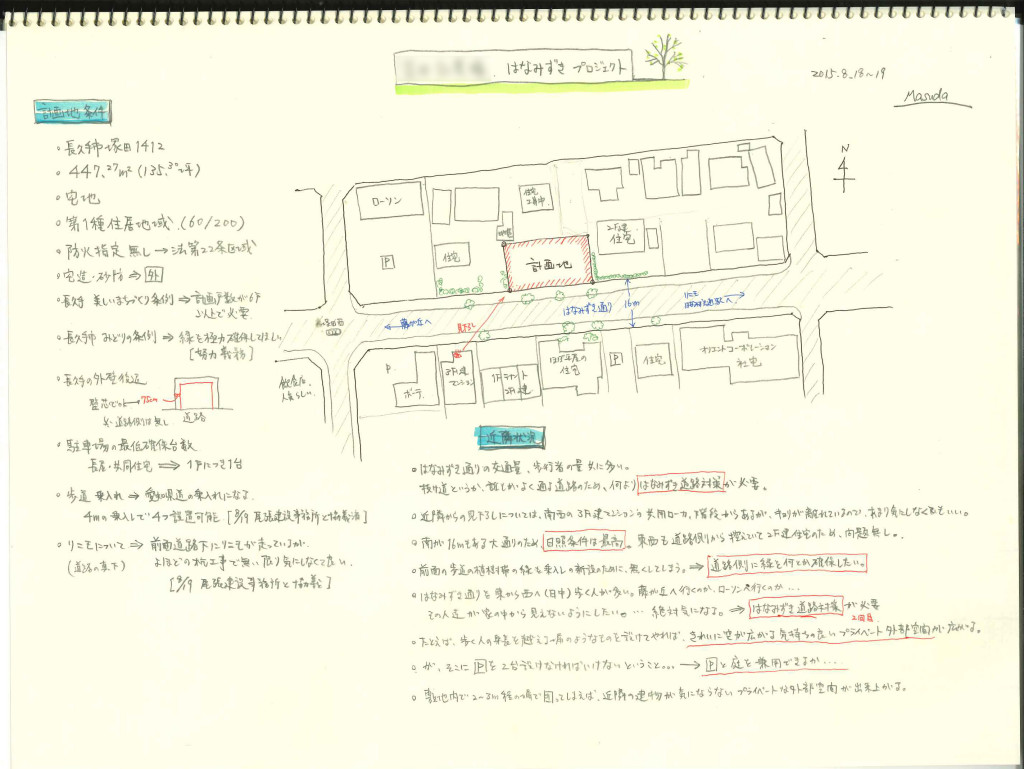 はなみずき プロジェクト
2015.8.18~19
Masuda
計画地条件
。長久手市塚田1412
。447.27m²(135.30坪)
。宅地
。第1種住居地域.(60/200)
。防火指定無し→法第22条区域
。宅造・砂防⇒外
。長久手 美しいまちづくり条例⇒計画戸数が6戸
以上で必要
。長久手 みどりの条例⇒緑を極力確保してほしい。
[努力義務]
。長久手の外壁後退
壁芯で0.4→75cm
道路側は無し 道路
。駐車場の最低確保台数
長屋・共同住宅⇒1戸につき1台
。歩道 乗入れ→愛知県道の乗入れになる.
4mの乗入しで4つ設置可能[8/9 尾張建設事務所と協議済]
。リニモについて→前面道路下にリニモが走っているが、
(道路の真下) よほどの杭工事で無い限り気にしなくて良い。
[8/9 尾張建設事務所と協議]
N
ローソン
P
住宅
住宅
工事中
物置
計画地
2F建
住宅
はなみずき通り
16m
リニモ
藤が丘へ
見下し
P
ボーテ
3F建
マンション
1Fテナント
2F建
住宅
P
住宅
オリエントコーポレーション
社宅
近隣状況
。はなみずき通りの交通量、歩行者の量共に多い。
抜け道というか、誰もがよく通る道路のため、何よりはなみずき道路対策が必要。
。近隣からの見下しについては、南西の3F建マンションの共用ローカ、階段からあるが、キョリが離れているので、あまり気にしなくてもいい。
。南が16mもある大通りのため、日照条件は最高。東西も道路側から控えていて2F建住宅のため、問題無し。
。前面の歩道の植樹帯の緑も乗入しの新設のために、無くしてしまう。⇒道路側に緑を何とか確保したい。
。はなみずき通りを東から西へ(日中)歩く人が多い。藤が丘へ行くのか、ローソンへ行くのか...
その人達が家の中から見えないようにしたい。... 絶対気になる。⇒はなみずき道路対策が必要
2回目
。たとえば、歩く人の身長を越える塀のようなものを設けてやれば、きれいに空が広がる気持ちの良いプライベート外部空間が広がる。
。が、そこにPを2台設けなければいけないということ...→Pと庭を兼用できるか...
。敷地内で2~3m程の塀で囲ってしまえば、近隣の建物が気にならないプライベートな外部空間が出来上がる。